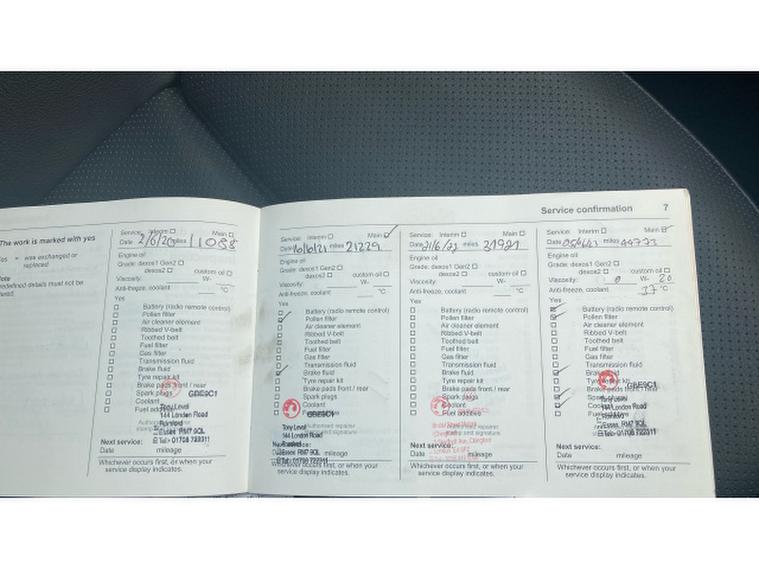 Service confirmation 7
The work is marked with yes
Yes = was exchanged or
replaced
Note
redefined details must not be
Service: Interim ☐ Main ☐
Date 2/6/20 miles 11088
Engine oil
Grade: dexos1 Gen2 ☐
dexos2 ☐ custom oil ☐
Viscosity: W-
Anti-freeze, coolant °C
Yes
☐ Battery (radio remote control)
☐ Pollen filter
☐ Air cleaner element
☐ Ribbed V-belt
☐ Toothed belt
☐ Fuel filter
☐ Gas filter
☐ Transmission fluid
☐ Brake fluid
☐ Tyre repair kit
☐ Brake pads front / rear
☐ Spark plugs
☐ Coolant
☐ Fuel additive
GBE9C1
Tony Level
144 London Road
Romford
Essex RM7 9QL
Tel: 01708 722311
Next service:
Date mileage
Whichever occurs first, or when your
service display indicates.
Service: Interim ☐ Main ☑
Date 16/6/21 miles 21229
Engine oil
Grade: dexos1 Gen2 ☐
dexos2 ☐ custom oil ☐
Viscosity: W-
Anti-freeze, coolant °C
Yes
☐ Battery (radio remote control)
☑ Pollen filter
☐ Air cleaner element
☐ Ribbed V-belt
☐ Toothed belt
☐ Fuel filter
☐ Gas filter
☐ Transmission fluid
☑ Brake fluid
☐ Tyre repair kit
☐ Brake pads front / rear
☐ Spark plugs
☐ Coolant
GBE9C1
Tony Level
144 London Road
Romford
Essex RM7 9QL
Tel: 01708 722311
Authorised repairer
stamp and signature
Next service:
mileage
Whichever occurs first, or when your
service display indicates.
Service: Interim ☐ Main ☐
Date 21/6/22 miles 31921
Engine oil
Grade: dexos1 Gen2 ☐
dexos2 ☐ custom oil ☐
Viscosity: W-
Anti-freeze, coolant °C
Yes
☐ Battery (radio remote control)
☐ Pollen filter
☐ Air cleaner element
☐ Ribbed V-belt
☐ Toothed belt
☐ Fuel filter
☐ Gas filter
☐ Transmission fluid
☐ Brake fluid
☐ Tyre repair kit
☐ Brake pads front / rear
☐ Spark plugs
☐ Coolant
☐ Fuel additive
Next service:
Date mileage
Whichever occurs first, or when your
service display indicates.
Service: Interim ☐ Main ☑
Date miles 44773
Engine oil
Grade: dexos1 Gen2 ☐
dexos2 ☐ custom oil ☐
Viscosity: 0 W- 20
Anti-freeze, coolant 37 °C
Yes
Battery (radio remote control)
☑ Pollen filter
☐ Air cleaner element
☐ Ribbed V-belt
☐ Toothed belt
☐ Fuel filter
☐ Gas filter
☐ Transmission fluid
☑ Brake fluid
☐ Tyre repair kit
☐ Brake pads front / rear
☑ Spark plugs
Coolant
☐ Fuel additive
GBE9C1
Tony Level
144 London Road
Romford
Essex RM7 9QL
Tel: 01708 722311
Next service:
Date mileage
Whichever occurs first, or when your
service display indicates.